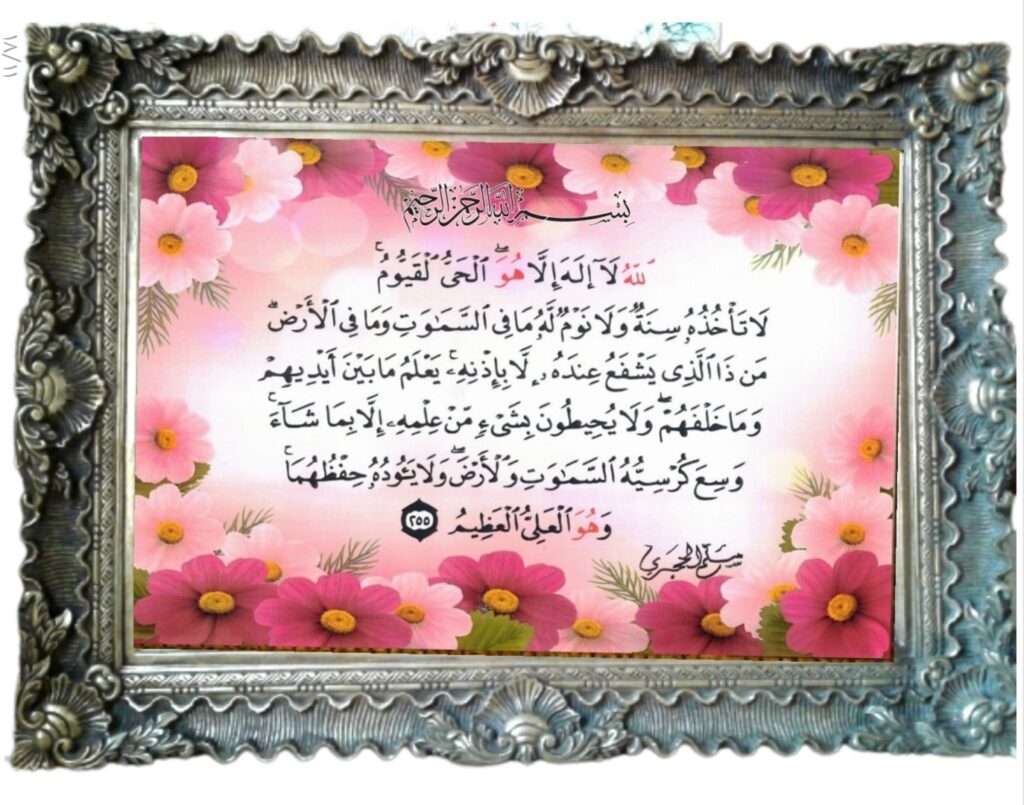 بِسْمِ اللَّهِ الرَّحْمَنِ الرَّحِيمِ
للَّهُ لَآ إِلَهَ إِلَّا هُوَ ۖ الْحَىُّ لْقَيُّومُ ۚ
لَا تَأْخُذُهُۥ سِنَةٌ وَلَا نَوْمٌ لَّهُۥ مَا فِى السَّمَٰوَٰتِ وَمَا فِى الْأَرْضِ ۗ
مَن ذَا الَّذِى يَشْفَعُ عِندَهُۥ إِلَّا بِإِذْنِهِۦ ۚ يَعْلَمُ مَا بَيْنَ أَيْدِيهِمْ
وَمَا خَلْفَهُمْ ۖ وَلَا يُحِيطُونَ بِشَىْءٍ مِّنْ عِلْمِهِۦ إِلَّا بِمَا شَآءَ ۚ
وَسِعَ كُرْسِيُّهُ السَّمَٰوَٰتِ وَالْأَرْضَ ۖ وَلَا يَـُٔودُهُۥ حِفْظُهُمَا ۚ
وَهُوَ الْعَلِىُّ الْعَظِيمُ ٢٥٥